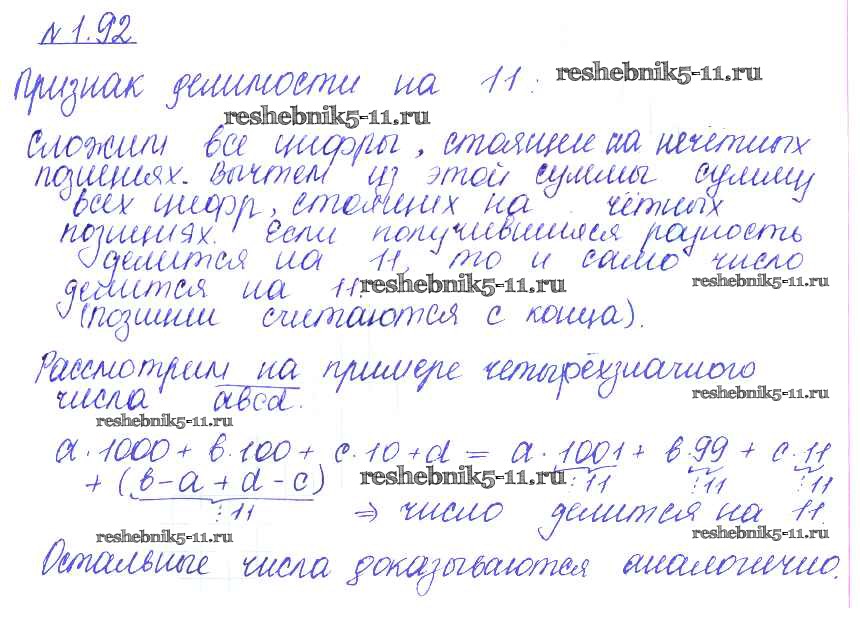 № 1.92
Признак делимости на 11: reshebnik5-11.ru
reshebnik5-11.ru
Сложим все цифры, стоящие на нечётных
позициях. Вычтем из этой суммы сумму
всех цифр, стоящих на чётных
позициях. Если получившиеся разность
делится на 11, то и само число
делится на 11. reshebnik5-11.ru reshebnik5-11.ru
(позиции считаются с конца).
Рассмотрим на примере четырёхзначного
числа abcd. reshebnik5-11.ru
reshebnik5-11.ru
a·1000 + b·100 + c·10 + d = a·1001 + b·99 + c·11
+ (b-a+d-c) reshebnik5-11.ru ⋮11 ⋮11 ⋮11
⋮11 ⇒ число делится на 11.
reshebnik5-11.ru reshebnik5-11.ru
Остальные числа доказываются аналогично.